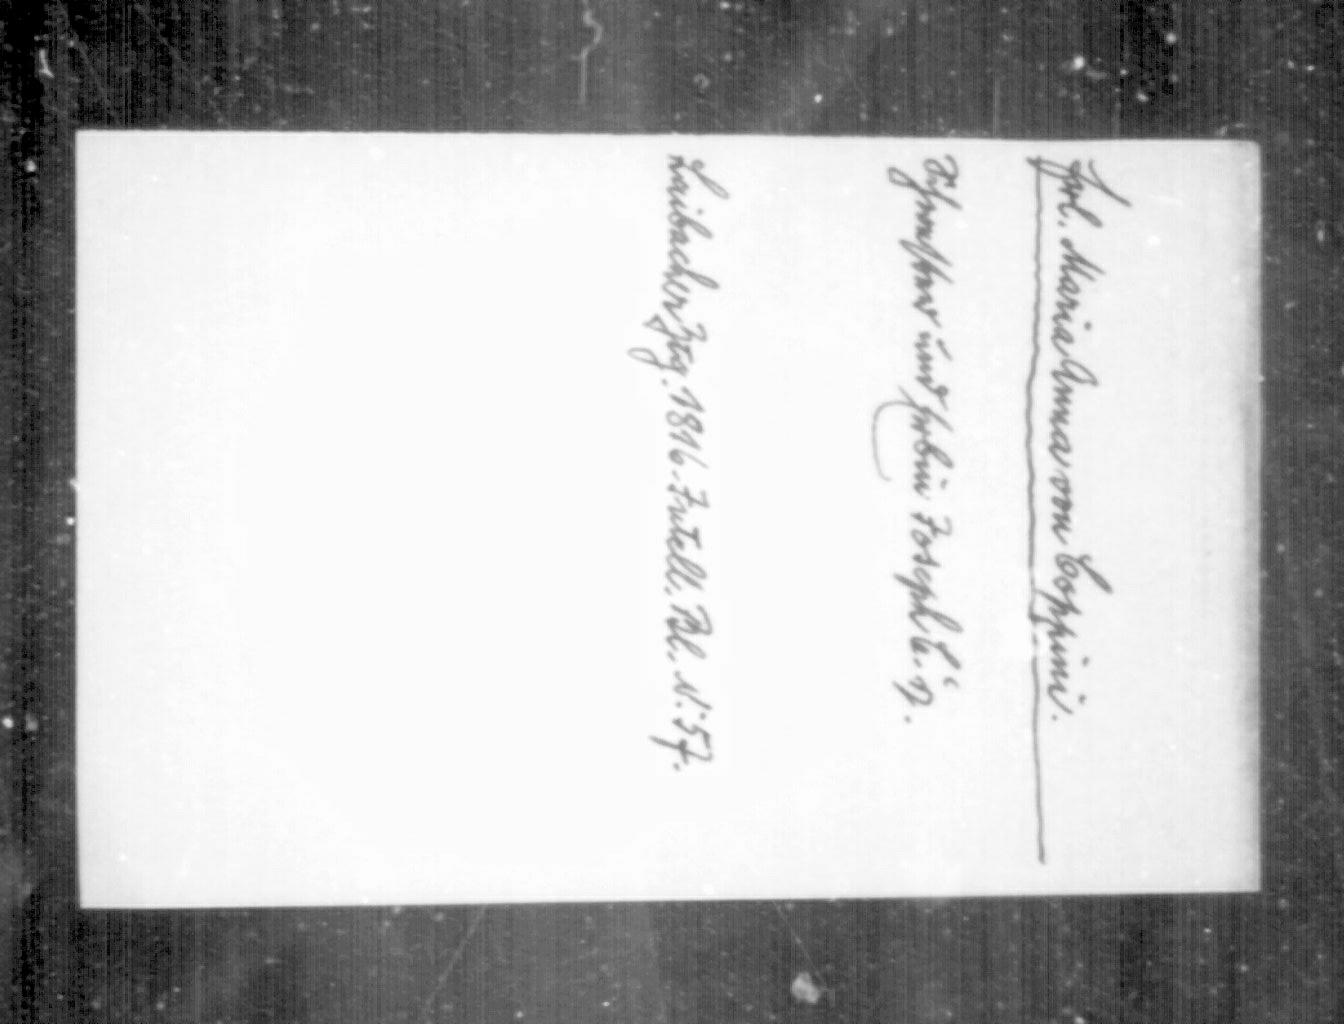 Frl. Maria Anna von Coppini.
Schwester und Erbin Joseph C's.
Laibacher Ztg. 1816. Intell. Bl. N: 57.